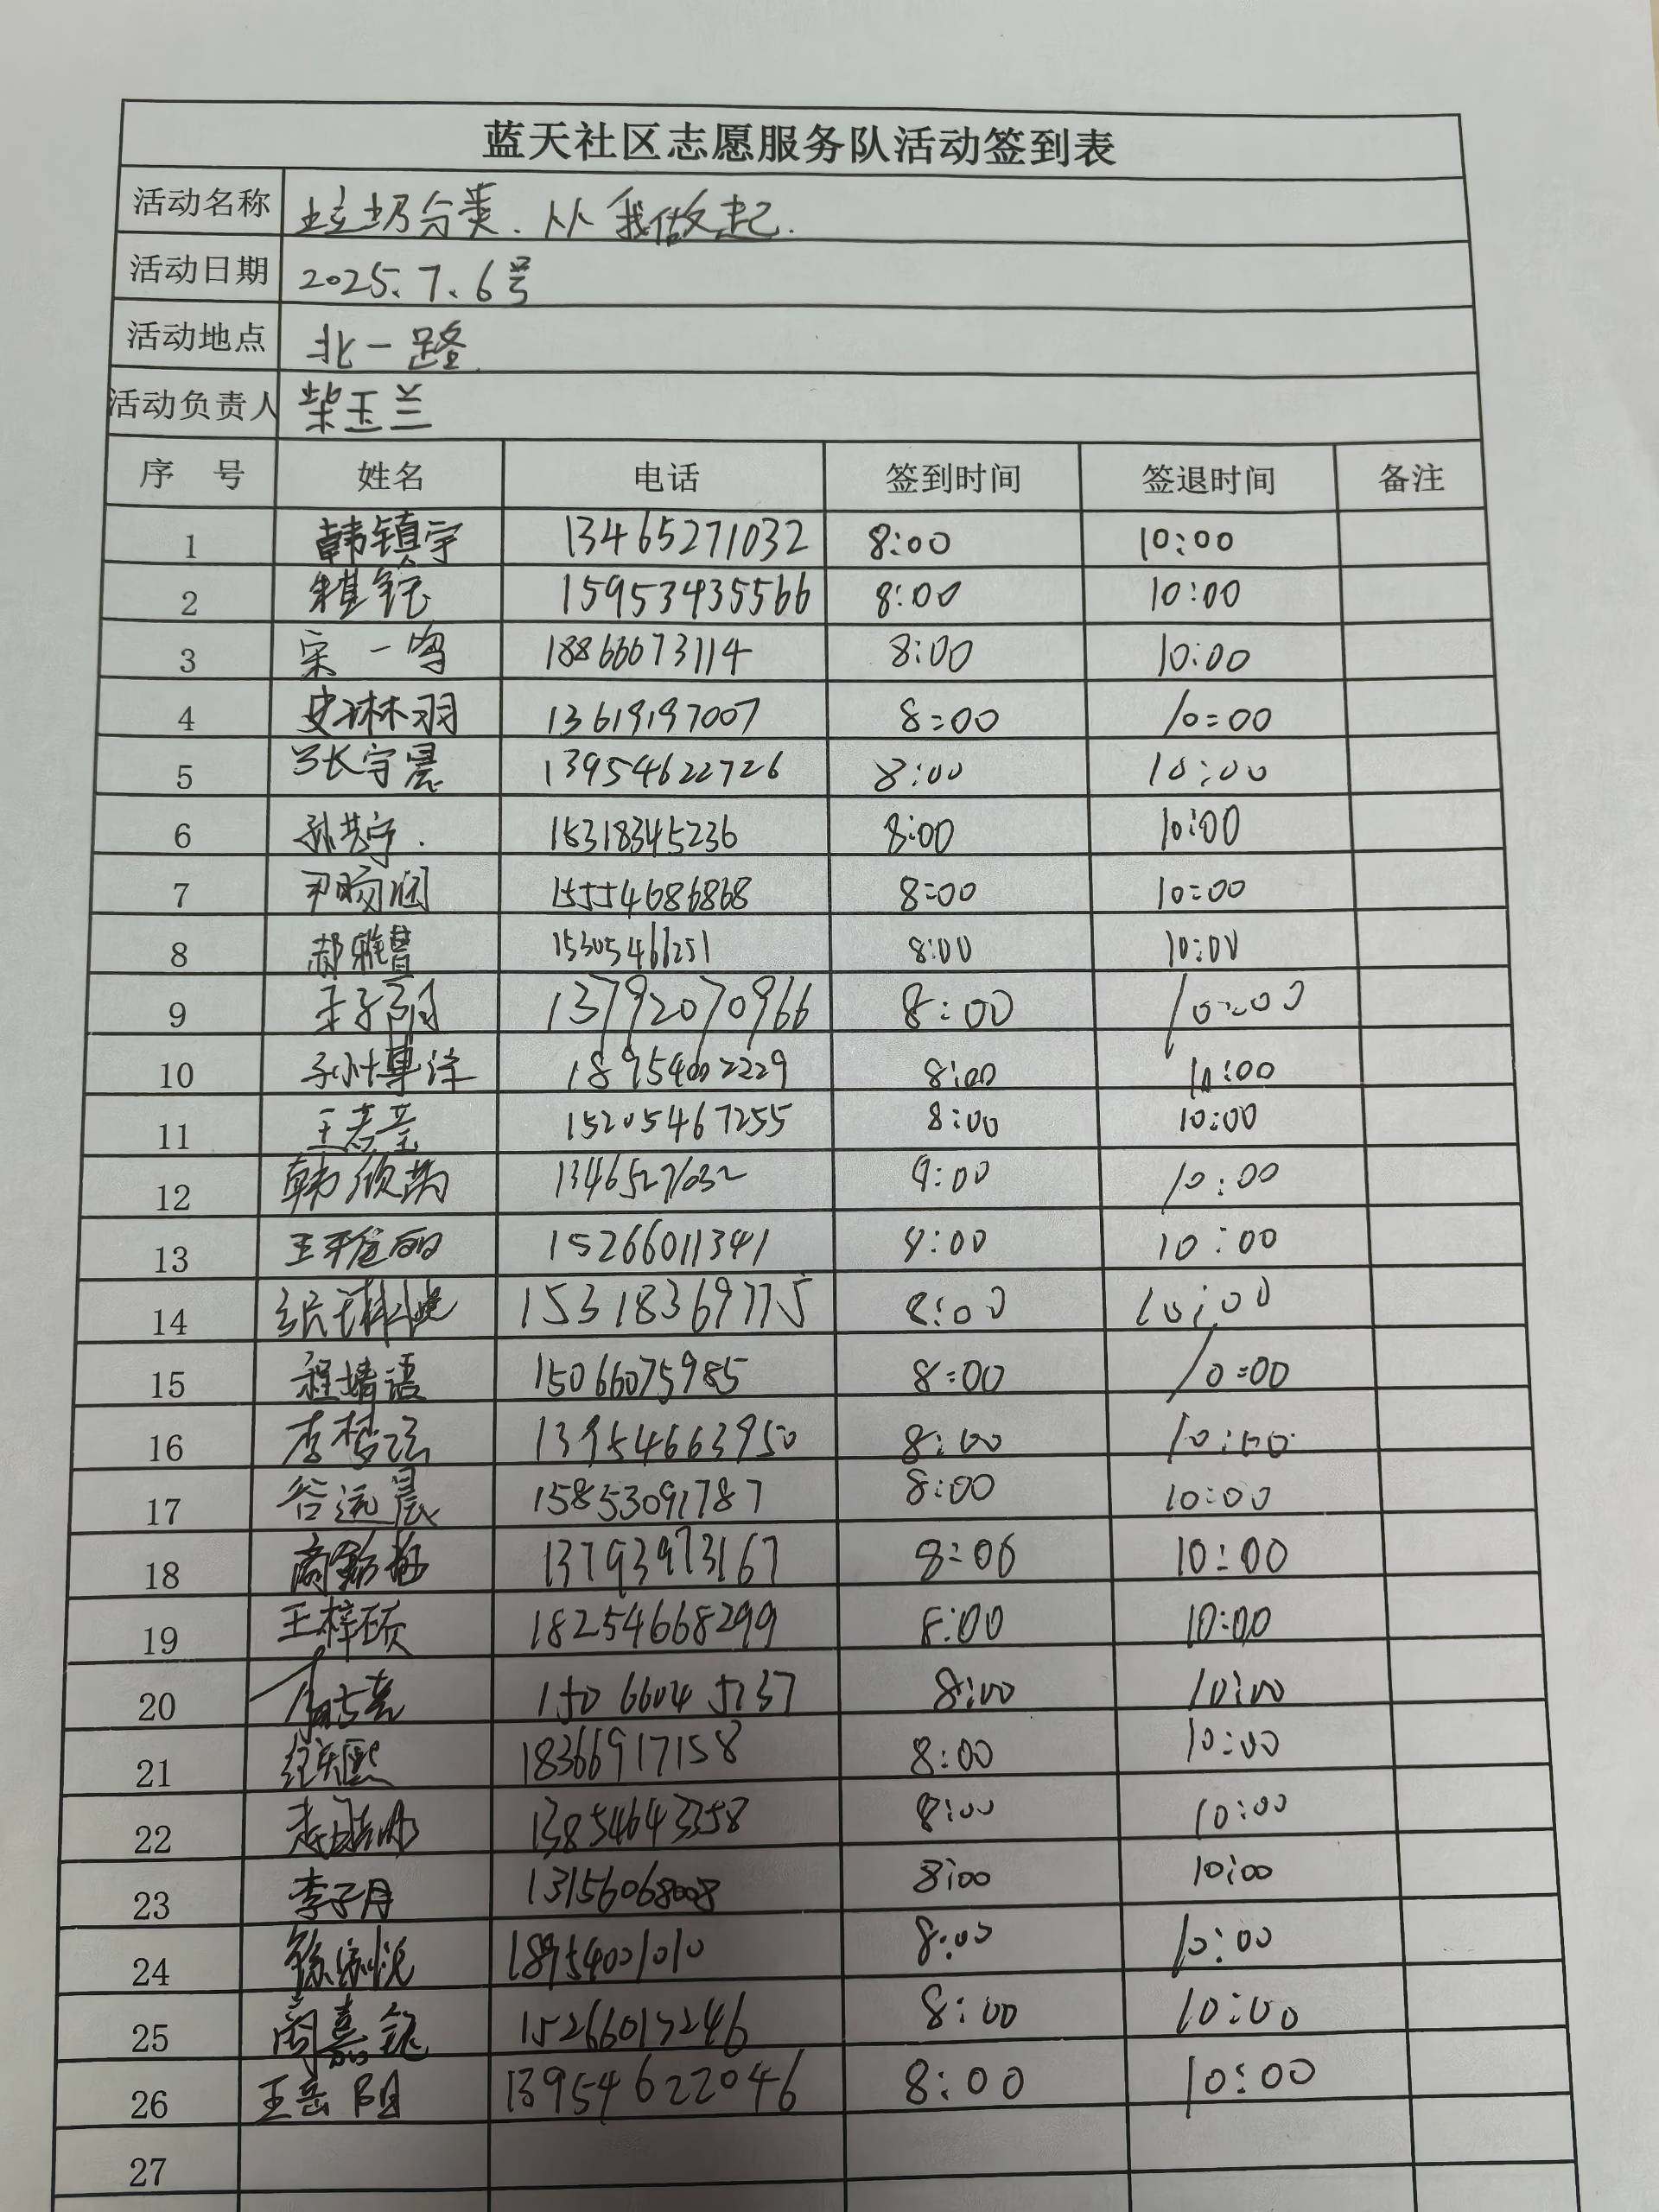 蓝天社区志愿服务队活动签到表
活动名称 垃圾分类.从我做起.
活动日期 2025.7.6号
活动地点 北一路
活动负责人 柴玉兰
序 号 姓名 电话 签到时间 签退时间 备注
1 韩镇宇 13465271032 8:00 10:00
2 15953435566 8:00 10:00
3 宋一鸣 18866673114 8:00 10:00
4 史琳羽 13619197007 8:00 10:00
5 张宇晨 13954622726 8:00 10:00
6 15318345236 8:00 10:00
7 15554686868 8:00 10:00
8 郝雅慧 15305466251 8:00 10:00
9 13792070966 8:00 10:00
10 8:00 10:00
11 15205467255 8:00 10:00
12 13465271032 9:00 10:00
13 15266011341 9:00 10:00
14 15318369775 8:00 10:00
15 程婧语 15066075985 8:00 10:00
16 13954663950 8:00 10:00
17 谷远晨 15853091787 8:00 10:00
18 13793973167 8:00 10:00
19 王梓硕 18254668299 8:00 10:00
20 8:00 10:00
21 18366917158 8:00 10:00
22 13854643358 8:00 10:00
23 李子月 13156068008 8:00 10:00
24 18954001010 8:00 10:00
25 8:00 10:00
26 王岳阳 13954622046 8:00 10:00
27